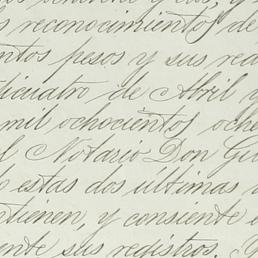 reconocimientos de
ntos pesos y sus red
ticuatro de Abril
mil ochocientos oche
l Notario Don Gu
estas dos últimas
ntienen, y consiente
ente sus registros.